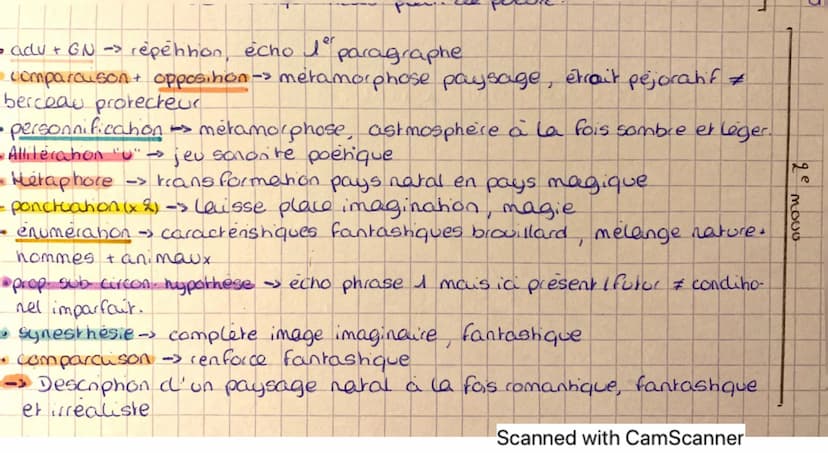 • adv + GN -> répétition, écho 1er paragraphe
• comparaison + opposition -> métamorphose paysage, étroit péjoratif ≠
berceau protecteur
• personnification -> métamorphose, astmosphère à la fois sombre et léger.
• Allitération "v" -> jeu sonorité poétique
• Métaphore -> transformation pays natal en pays magique
• ponctuation (x2) -> laisse place imagination, magie
• énumération -> caractéristiques fantastiques brouillard, mélange nature +
hommes + animaux
• prop sub circon. hypothèse -> écho phrase 1 mais ici présent/futur ≠ conditio-
nel imparfait.
• synesthésie -> complète image imaginaire, fantastique
• comparaison -> renforce fantastique
-> Description d'un paysage natal à la fois romantique, fantastique
et irréaliste
2e mouv
Scanned with CamScanner